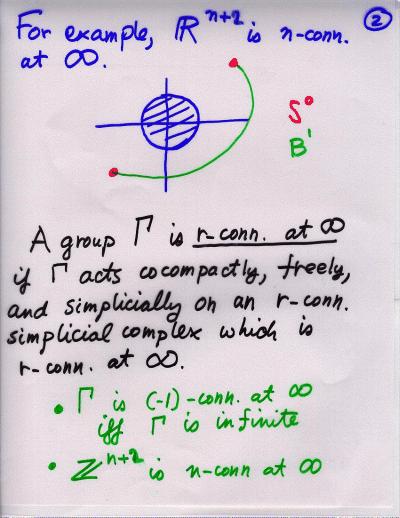 For example, ℝⁿ⁺² is n-conn.
at ∞.
②
S⁰
B¹
A group Γ is r-conn. at ∞
if Γ acts cocompactly, freely,
and simplicially on an r-conn.
simplicial complex which is
r-conn. at ∞.
• Γ is (-1)-conn. at ∞
iff Γ is infinite
• ℤⁿ⁺² is n-conn at ∞